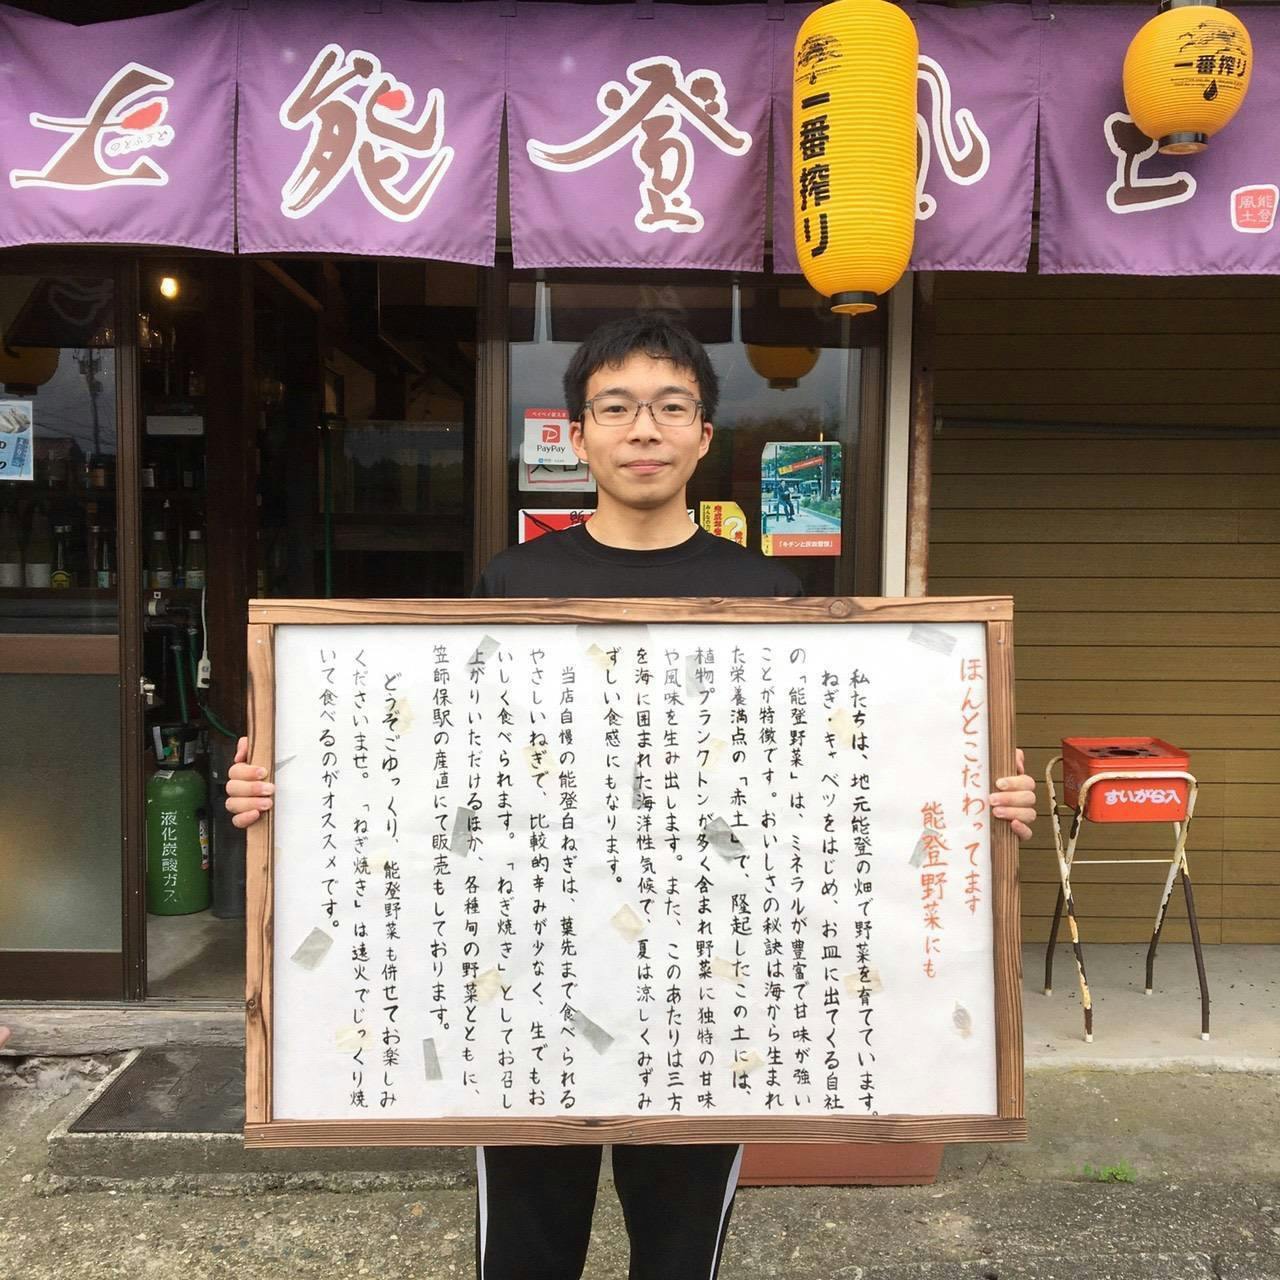 能登
のとふうど
能登風土
一番搾り
一番搾り
ペイペイ使えます
PayPay
「キチンと灰皿管理」
すいがら入
液化炭酸ガス
ほんとこだわってます
能登野菜にも
私たちは、地元能登の畑で野菜を育てています。
ねぎ・キャベツをはじめ、お皿に出てくる自社
の「能登野菜」は、ミネラルが豊富で甘味が強い
ことが特徴です。おいしさの秘訣は海から生まれ
た栄養満点の「赤土」で、隆起したこの土には、
植物プランクトンが多く含まれ野菜に独特の甘味
や風味を生み出します。また、このあたりは三方
を海に囲まれた海洋性気候で、夏は涼しくみずみ
ずしい食感にもなります。
当店自慢の能登白ねぎは、葉先まで食べられる
やさしいねぎで、比較的辛みが少なく、生でもお
いしく食べられます。「ねぎ焼き」としてお召し
上がりいただけるほか、各種旬の野菜とともに、
笠師保駅の産直にて販売もしております。
どうぞごゆっくり、能登野菜も併せてお楽しみ
くださいませ。「ねぎ焼き」は遠火でじっくり焼
いて食べるのがオススメです。